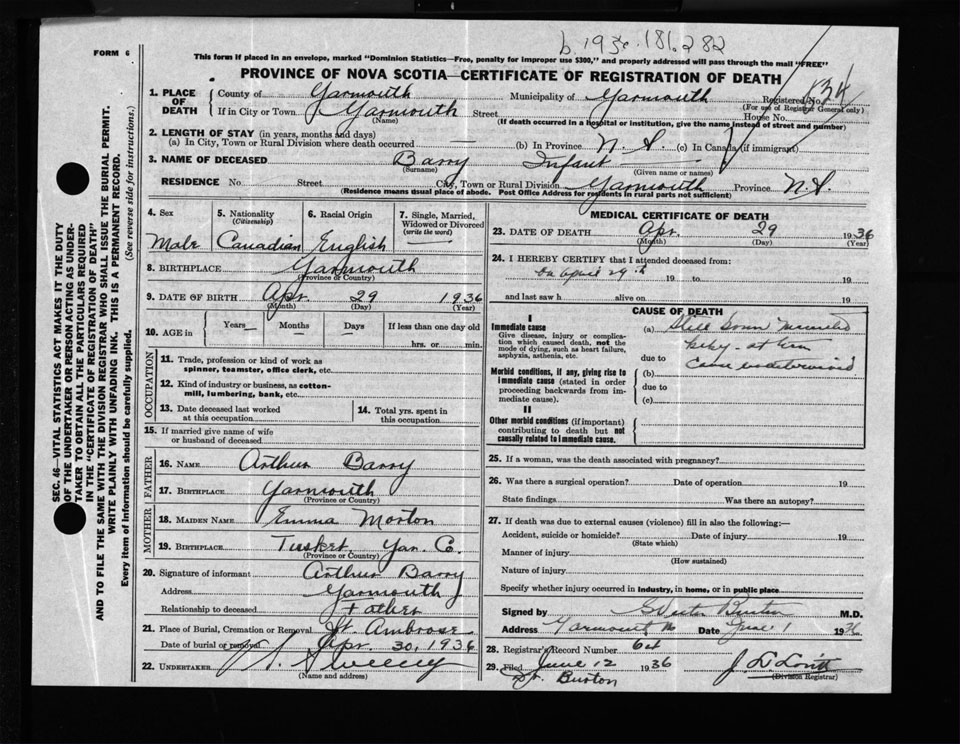 b. 1936. 181. 282
FORM 6
This form if placed in an envelope, marked "Dominion Statistics—Free, penalty for improper use $300," and properly addressed will pass through the mail "FREE"
PROVINCE OF NOVA SCOTIA—CERTIFICATE OF REGISTRATION OF DEATH
1. PLACE OF DEATH
County of Yarmouth Municipality of Yarmouth Registered No. 834
(For use of Registrar General only)
If in City or Town Yarmouth Street House No.
(Name) (If death occurred in a hospital or institution, give the name instead of street and number)
2. LENGTH OF STAY (in years, months and days)
(a) In City, Town or Rural Division where death occurred — (b) In Province N. S. (c) In Canada (if immigrant)
3. NAME OF DECEASED Barry Infant
(Surname) (Given name or names)
RESIDENCE No. Street City, Town or Rural Division Yarmouth Province N.S.
(Residence means usual place of abode. Post Office Address for residents in rural parts not sufficient)
4. Sex 5. Nationality (Citizenship) 6. Racial Origin 7. Single, Married, Widowed or Divorced (write the word)
Male Canadian English —
8. BIRTHPLACE Yarmouth
(Province or Country)
9. DATE OF BIRTH Apr. 29 1936
(Month) (Day) (Year)
10. AGE in Years Months Days If less than one day old
hrs. or min.
OCCUPATION
11. Trade, profession or kind of work as spinner, teamster, office clerk, etc.
12. Kind of industry or business, as cotton-mill, lumbering, bank, etc.
13. Date deceased last worked at this occupation
14. Total yrs. spent in this occupation
15. If married give name of wife or husband of deceased
FATHER
16. NAME Arthur Barry
17. BIRTHPLACE Yarmouth
(Province or Country)
MOTHER
18. MAIDEN NAME Emma Morton
19. BIRTHPLACE Tusket, Yar. Co.
(Province or Country)
20. Signature of informant Arthur Barry
Address Yarmouth
Relationship to deceased Father
21. Place of Burial, Cremation or Removal St. Ambrose
Date of burial or removal Apr. 30, 1936
22. UNDERTAKER Sweeny
(Name and address)
MEDICAL CERTIFICATE OF DEATH
23. DATE OF DEATH Apr. 29 1936
(Month) (Day) (Year)
24. I HEREBY CERTIFY that I attended deceased from:
on april 29th 19 to 19
and last saw h alive on 19
CAUSE OF DEATH
I
Immediate cause
Give disease, injury or complication which caused death, not the mode of dying, such as heart failure, asphyxia, asthenia, etc.
(a) Still born
baby at term
due to
(b) Cause undetermined
Morbid conditions, if any, giving rise to immediate cause (stated in order proceeding backwards from immediate cause).
due to
(c)
II
Other morbid conditions (if important) contributing to death but not causally related to immediate cause.
25. If a woman, was the death associated with pregnancy?
26. Was there a surgical operation? Date of operation 19
State findings Was there an autopsy?
27. If death was due to external causes (violence) fill in also the following:—
Accident, suicide or homicide? Date of injury 19
(State which)
Manner of injury
(How sustained)
Nature of injury
Specify whether injury occurred in industry, in home, or in public place
Signed by Burton M.D.
Address Yarmouth Date June 1 1936
28. Registrar's Record Number 64
29. Filed June 12 1936
(Division Registrar)
Dr. Burton
SEC. 46—VITAL STATISTICS ACT MAKES IT THE DUTY
OF THE UNDERTAKER OR PERSON ACTING AS UNDER-
TAKER TO OBTAIN ALL THE PARTICULARS REQUIRED
IN THE "CERTIFICATE OF REGISTRATION OF DEATH"
AND TO FILE THE SAME WITH THE DIVISION REGISTRAR WHO SHALL ISSUE THE BURIAL PERMIT.
WRITE PLAINLY WITH UNFADING INK. THIS IS A PERMANENT RECORD.
Every item of information should be carefully supplied. (See reverse side for instructions.)